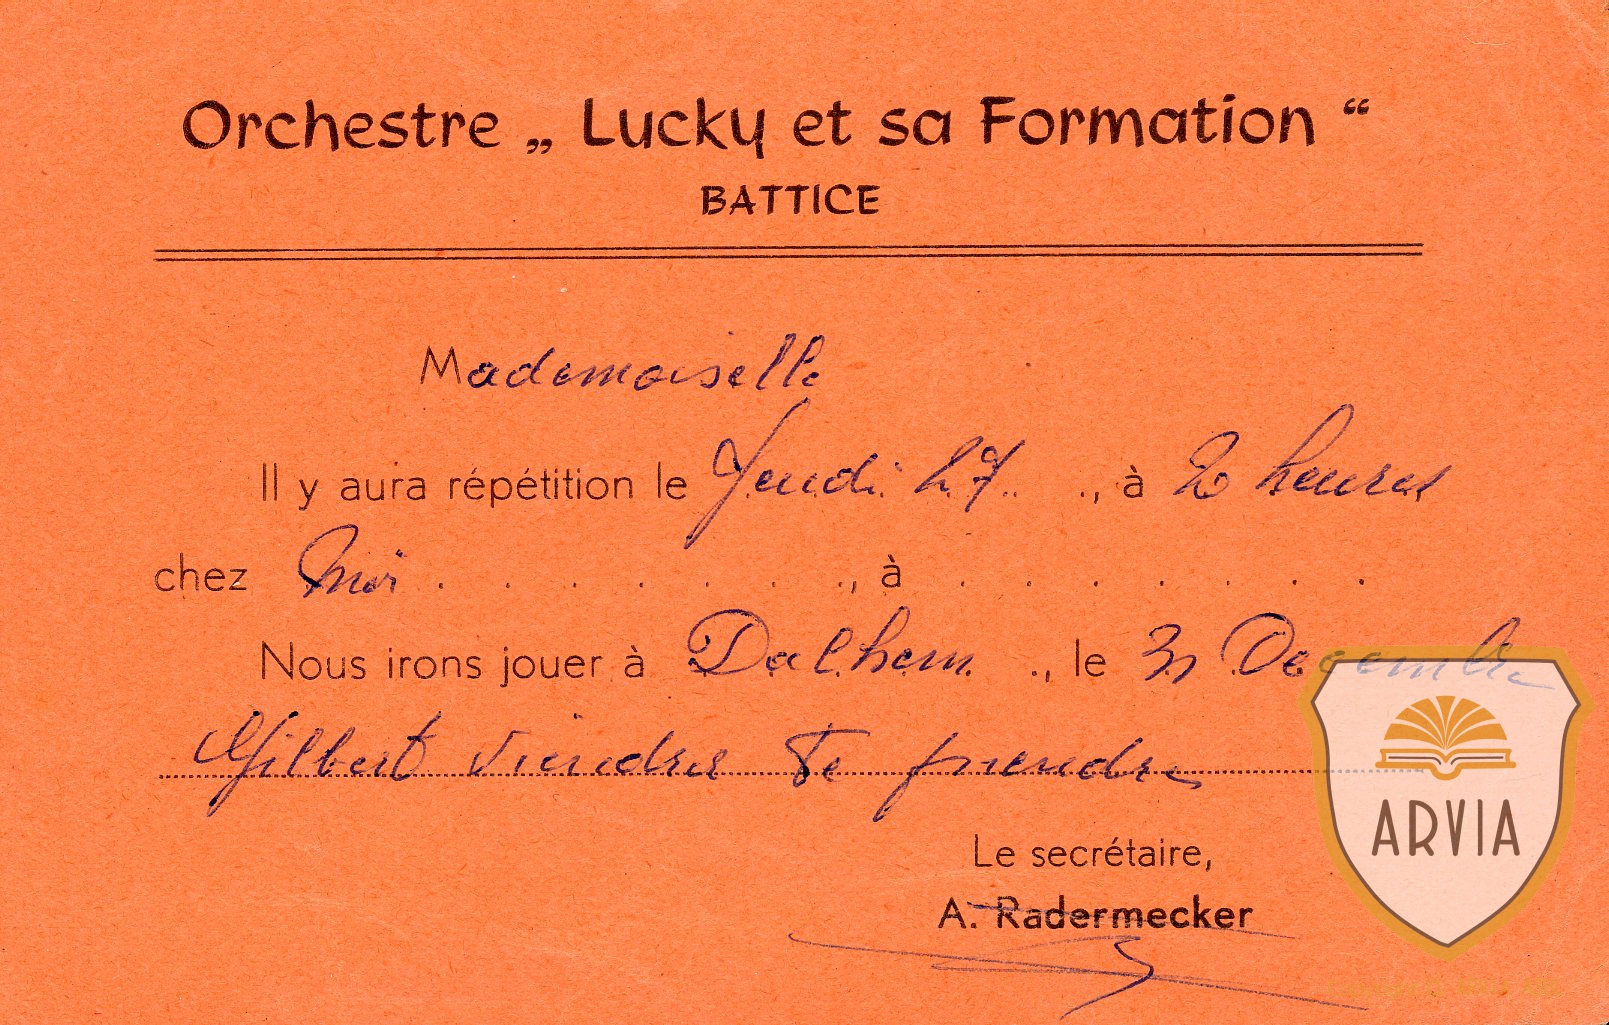 Orchestre „ Lucky et sa Formation “
BATTICE
Mademoiselle
Il y aura répétition le Jeudi 27 . . ., à 2 heures
chez moi . . . . . . . ., à . . . . . . . .
Nous irons jouer à Dalhem . ., le 31 Decembre
Gilbert viendra te prendre
Le secrétaire,
A. Radermecker
ARVIA